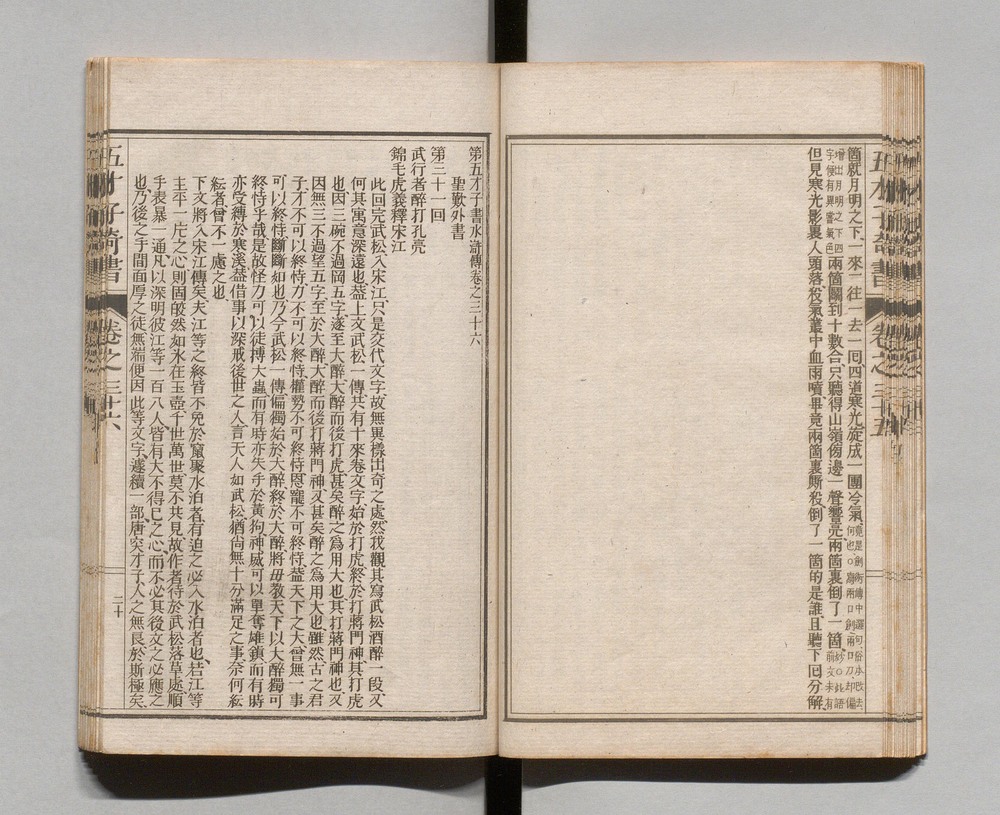 五才子奇書
卷之三十五
箇就月明之下一來一往一去一囘四道寒光旋成一團冷氣
兩箇鬭到十數合只聽得山嶺傍邊一聲響亮兩箇裏倒了一箇
但見寒光影裏人頭落殺氣叢中血雨噴畢竟兩箇裏厮殺倒了一箇的是誰且聽下囘分解
第五才子書水滸傳卷之三十六
聖歎外書
第三十一回
武行者醉打孔亮
錦毛虎義釋宋江
此回完武松入宋江只是交代文字故無異樣出奇之處然我觀其寫武松酒醉一段又
何其寓意深遠也葢上文武松一傳共有十來卷文字始於打虎終於打蔣門神其打虎
也因三碗不過岡五字遂至大醉大醉而後打虎甚矣醉之爲用大也其打蔣門神也又
因無三不過望五字至於大醉大醉而後打蔣門神又甚矣醉之爲用大也雖然古之君
子才不可以終恃力不可以終恃權勢不可終恃恩寵不可終恃葢天下之大曾無一事
可以終恃斷斷如也乃今武松一傳偏獨始於大醉終於大醉將毋敎天下以大醉獨可
終恃乎哉是故怪力可以徒搏大蟲而有時亦失手於黃狗神威可以單奪雄鎮而有時
亦受縛於寒溪葢借事以深戒後世之人言天人如武松猶尚無十分滿足之事奈何紜
紜者曾不一慮之也
下文將入宋江傳矣夫江等之終皆不免於竄聚水泊者有迫之必入水泊者也若江等
生平一片之心則固皎然如氷在玉壺千世萬世莫不共見故作者待於武松落草處順
手表暴一通凡以深明彼江等一百八人皆有大不得巳之心而不必其後文之必應之
也乃後之手間面厚之徒無端便因此等文字遽續一部唐突才子人之無良於斯極矣
五才子奇書
卷之三十六
二十